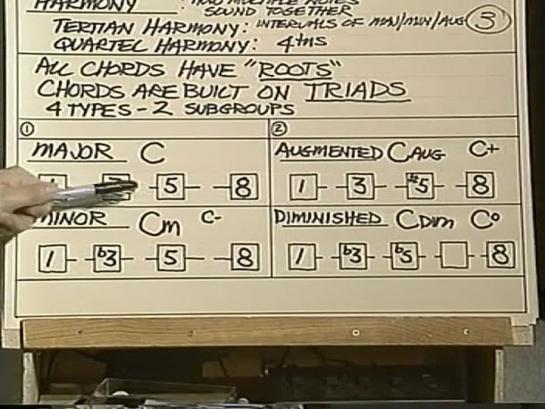 HARMONY : HOW MULTIPLE NOTES
SOUND TOGETHER
TERTIAN HARMONY: INTERVALS OF MAJ/MIN/AUG 3
QUARTEL HARMONY: 4THS
ALL CHORDS HAVE "ROOTS"
CHORDS ARE BUILT ON TRIADS
4 TYPES - 2 SUBGROUPS
1
MAJOR C
1 3 5 8
2
AUGMENTED CAUG C+
1 3 #5 8
MINOR Cm C-
1 b3 5 8
DIMINISHED CDIM C°
1 b3 b5 8